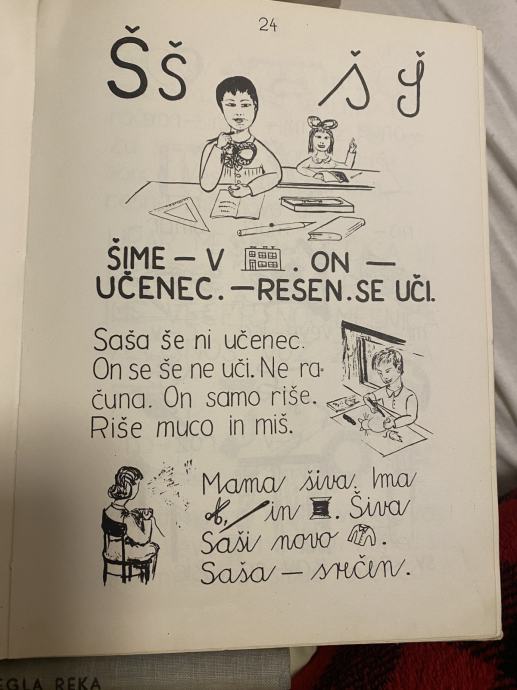 24
Šš Š š
ŠIME – V . ON –
UČENEC. – RESEN. SE UČI.
Saša še ni učenec.
On se še ne uči. Ne ra-
čuna. On samo riše.
Riše muco in miš.
Mama šiva. Ima
in . Šiva
Saši novo .
Saša – srečen.
EGLA REKA